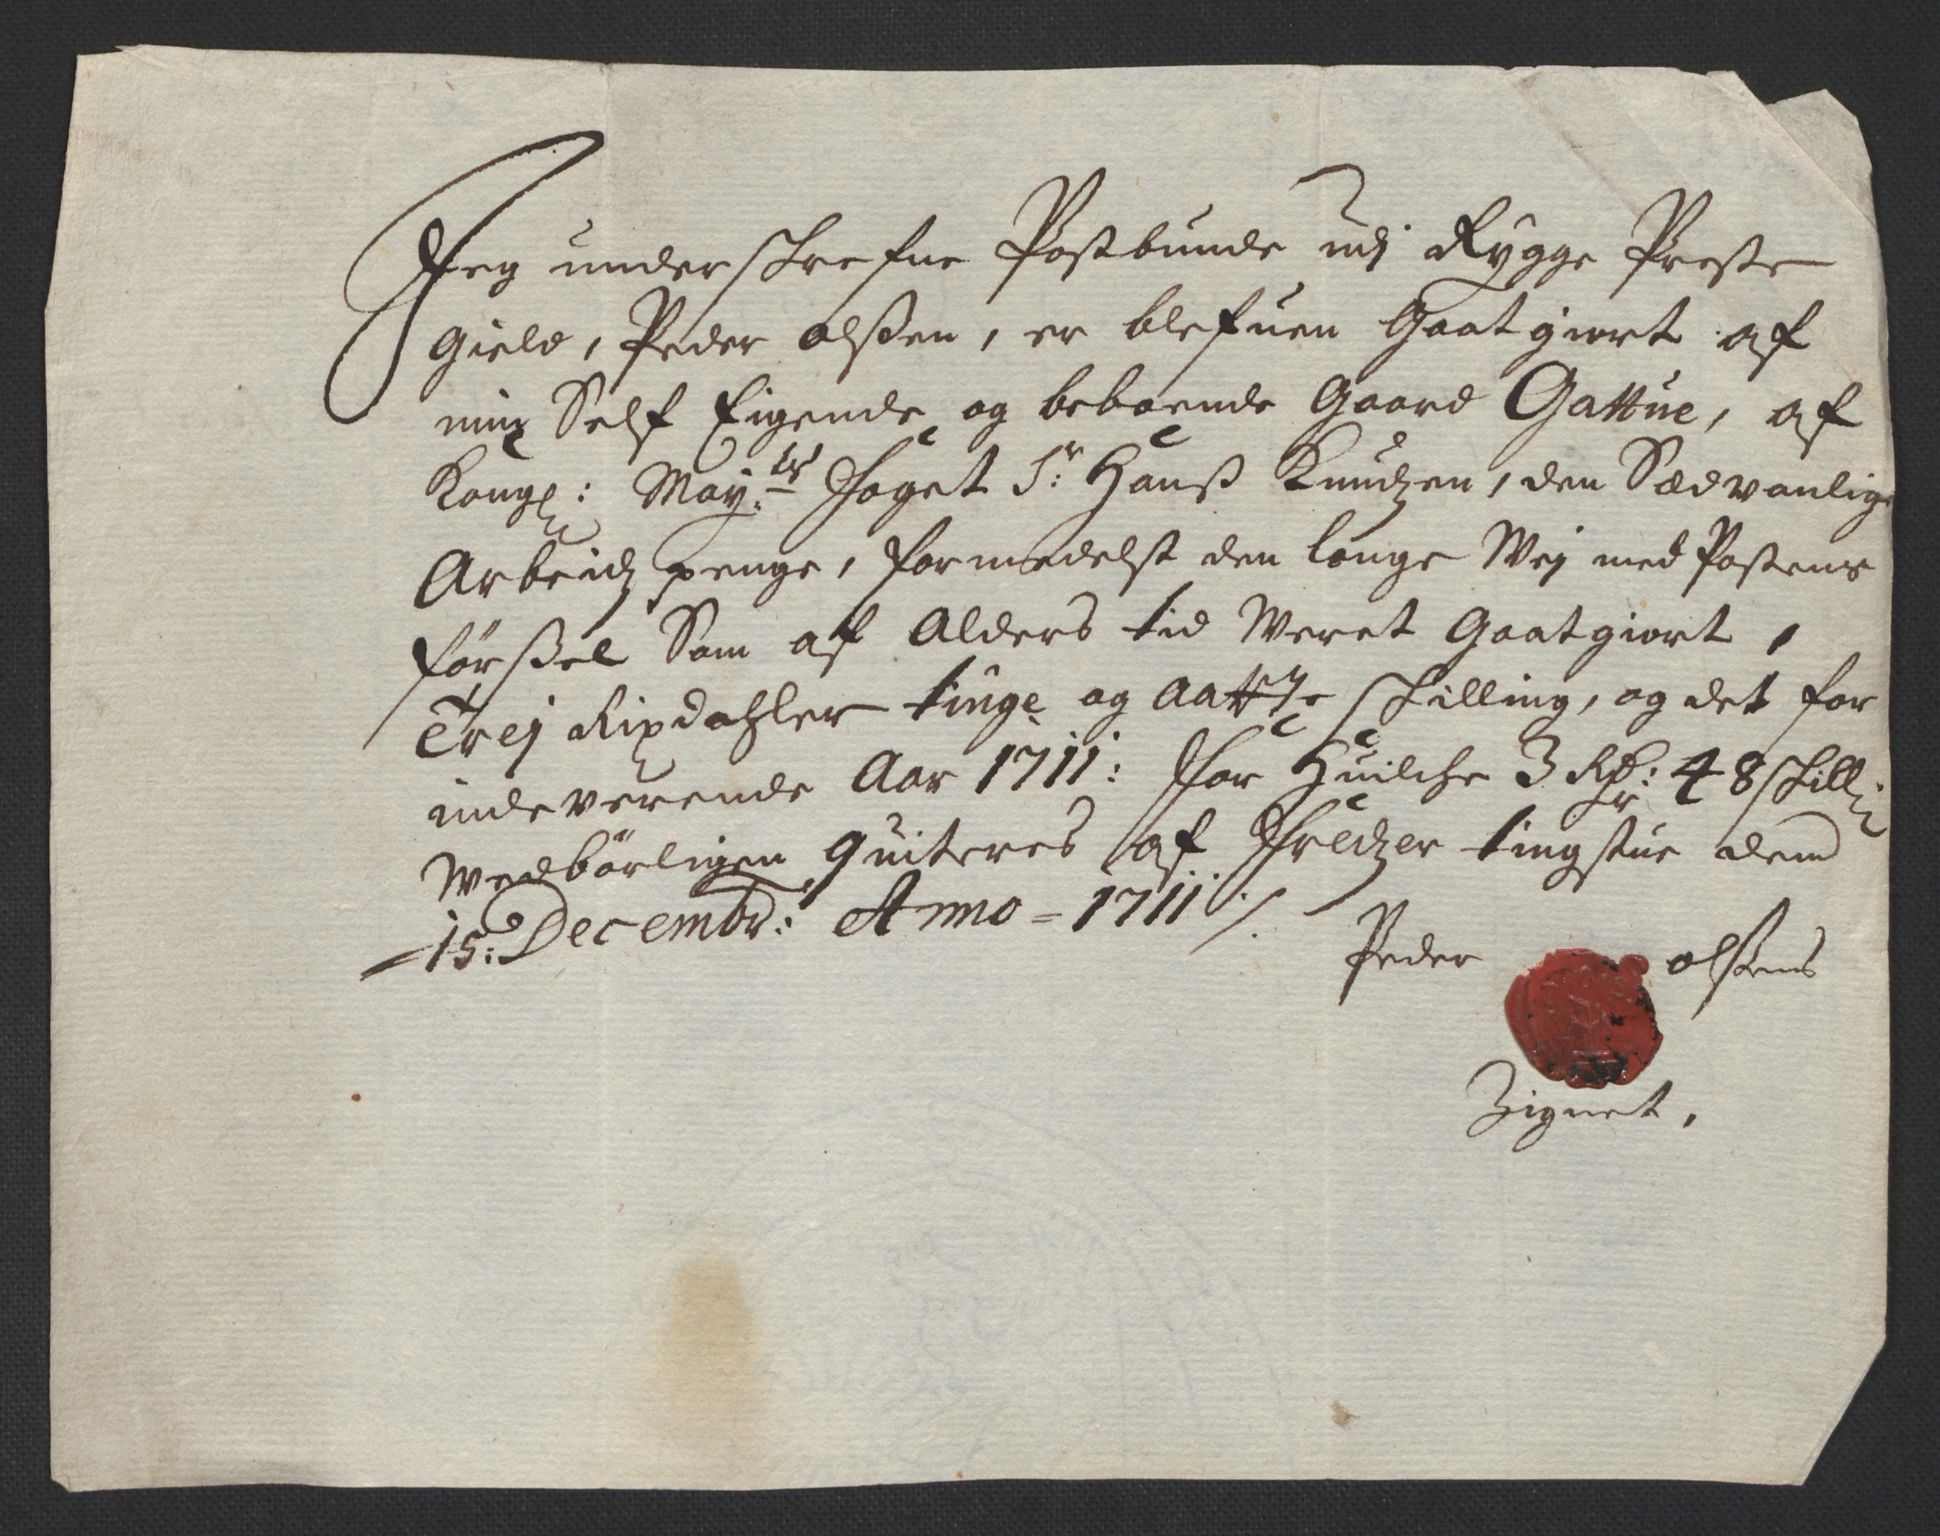 Jeg underschrefne Postbunde udj Rygge Preste
gield, Peder olsßen, er blefuen Gaatgiort af
min Self Eigende og beboende Gaard Gattue, af
Kongl: Mayts: Foget Sr: Hanß Knudzen, den Sædvanlige
Arbeidz penge, formedelst den lange Wej med Postens
førßel Som af Alders tid Weret Gaatgiort,
Trej Rixdahler tiuge og Aatte schilling, og det for
indeverende Aar 1711: for Huilche 3 Rdr: 48 schill:
Wedbørligen quiteres af Fredzer tingstue dend
15: Decembr: Anno = 1711 /:
Peder olsßens
Zignet,